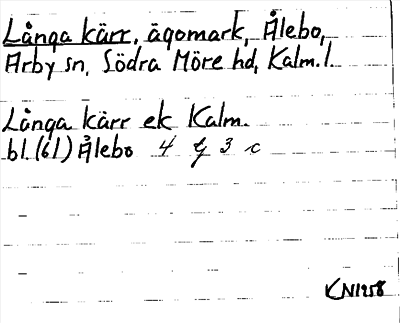 Långa kärr, ägomark, Ålebo,
Arby sn, Södra Möre hd, Kalm. l.
Långa kärr ek Kalm.
bl. (61) Ålebo 4 g 3 c
KN1958